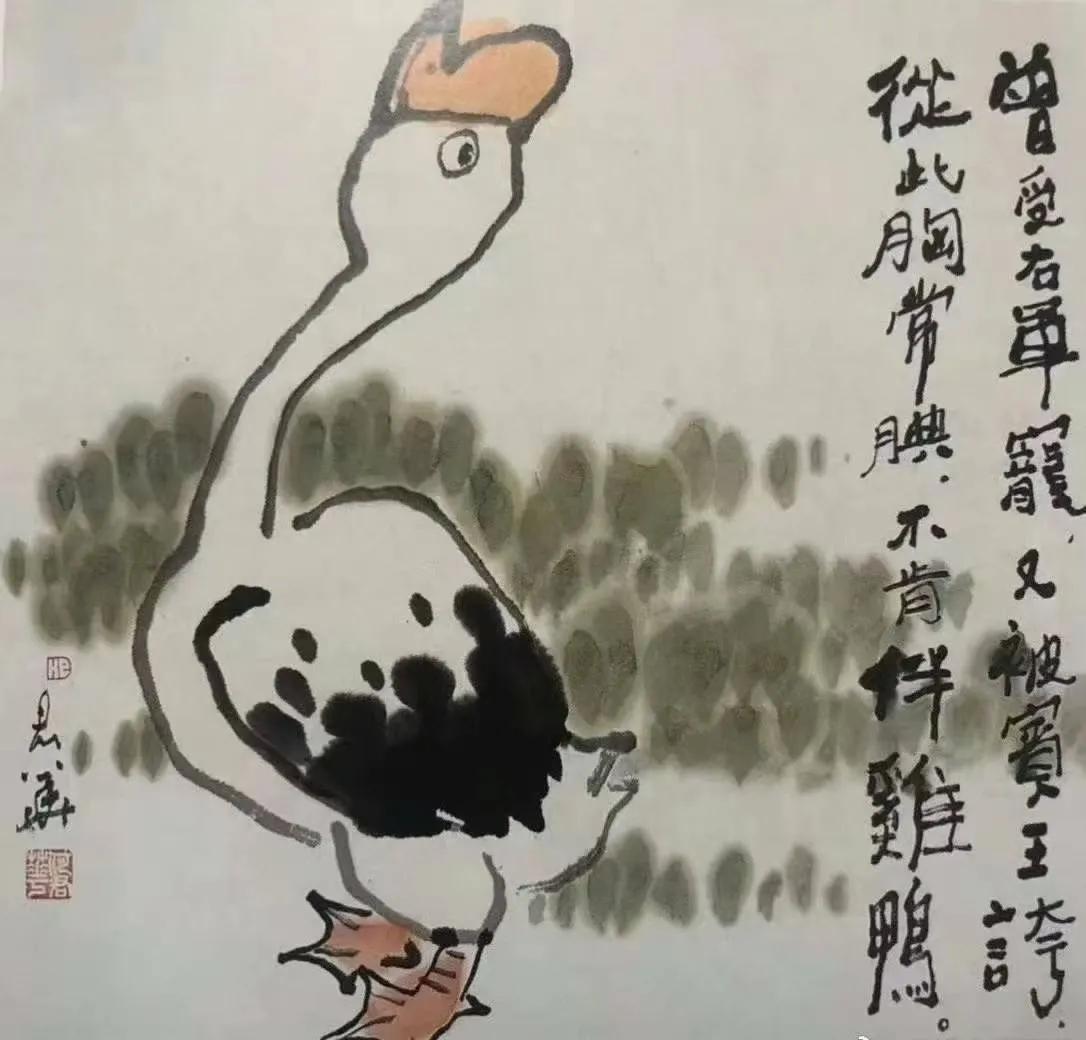 曾受右軍寵，又被賓王誇，
從此胸常腆，不肯伴雞鴨。
君華